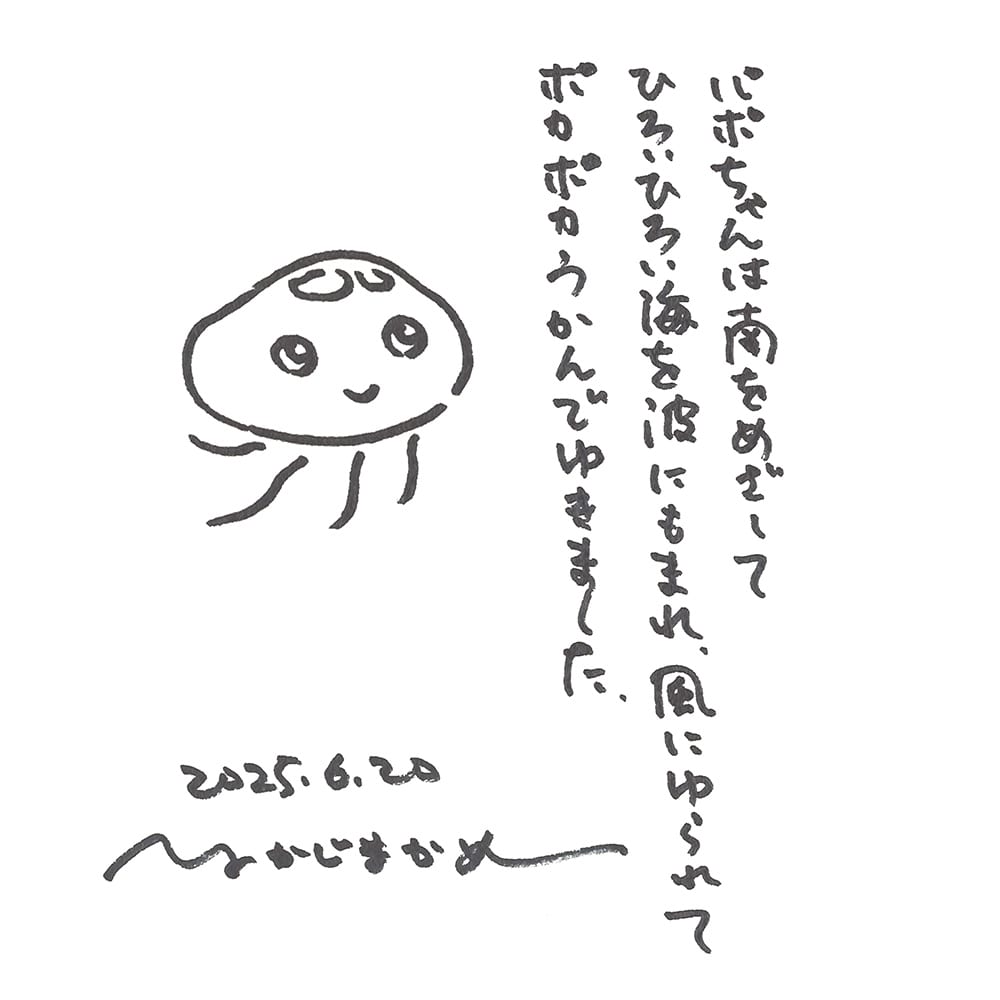 パポちゃんは南をめざして
ひろいひろい海を波にもまれ、風にゆられて
ポカポカうかんでゆきました。
2025.6.20
なかじまかめ